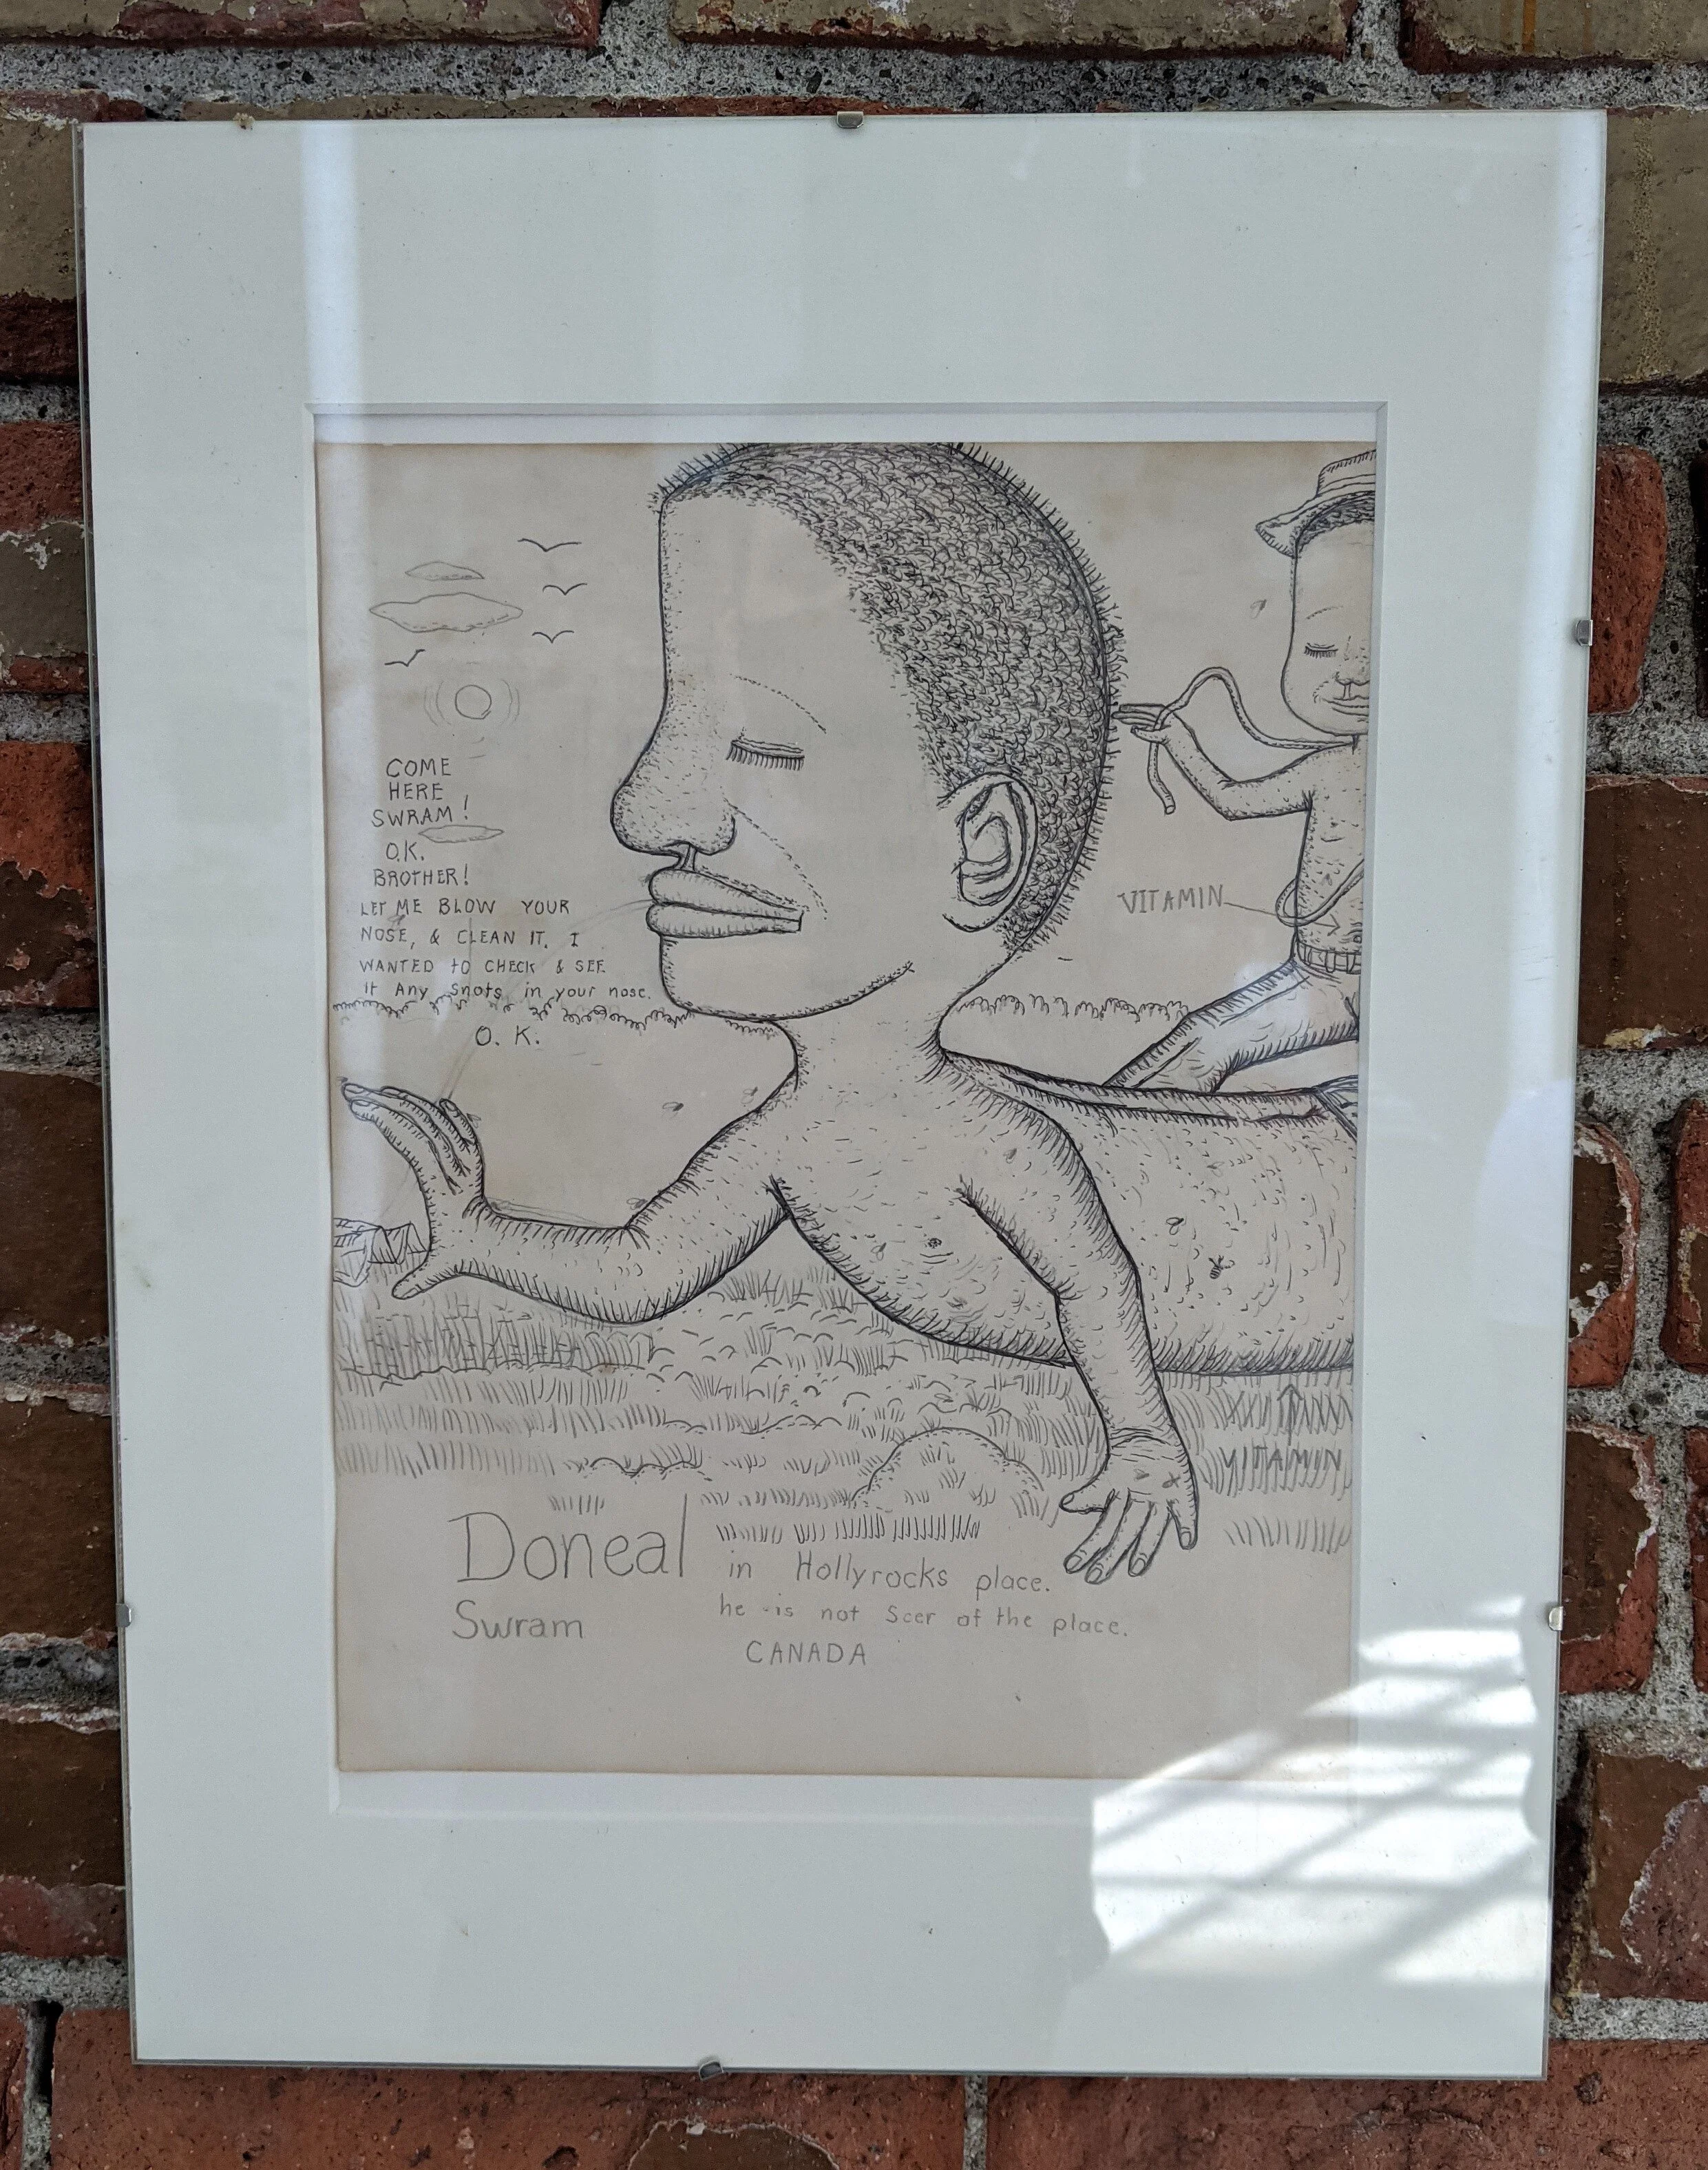 COME
HERE
SWRAM!
O.K.
BROTHER!
LET ME BLOW YOUR
NOSE, & CLEAN IT. I
WANTED to CHECK & SEE
if Any Snots in your nose.
O. K.
VITAMIN
VITAMIN
Doneal in Hollyrocks place.
Swram he is not Scer of the place.
CANADA